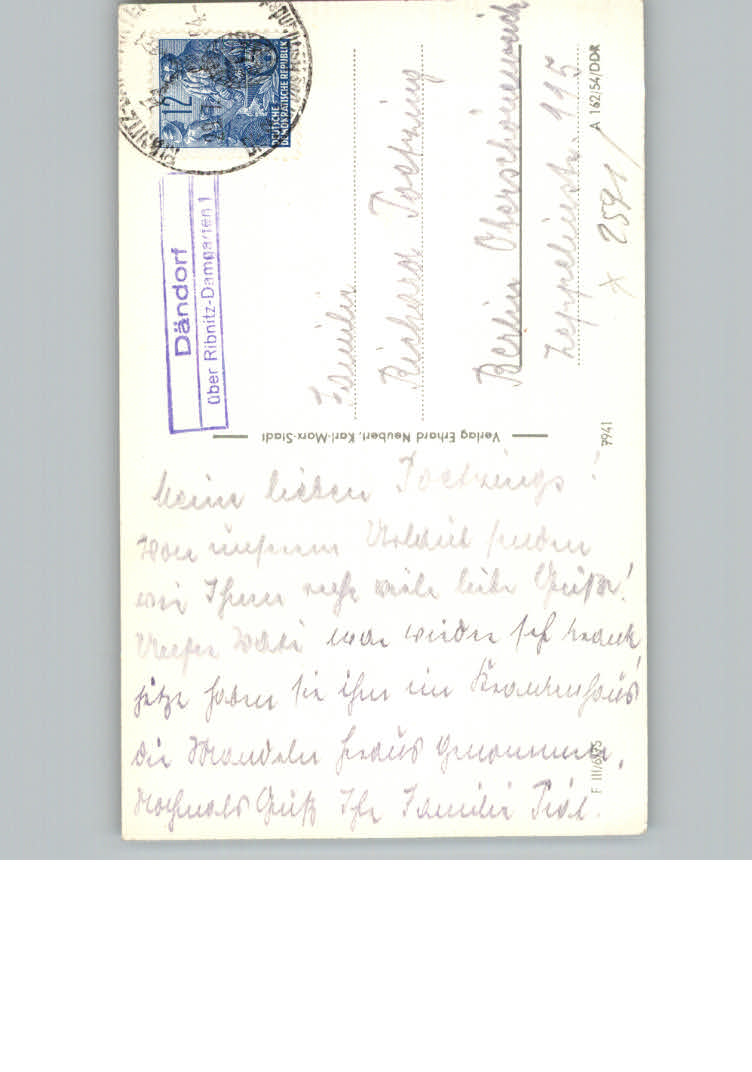 12
DEUTSCHE
DEMOKRATISCHE REPUBLIK
Dändorf
über Ribnitz-Damgarten 1
Familie
Richard Poetzing
Berlin Oberschöneweide
Zeppelinstr. 115
x 2591
A 162/54/DDR
Verlag Erhard Neubert, Karl-Marx-Stadt
7941
Meine lieben Poetzings!
Von unserem Urlaub senden
wir Ihnen recht viele liebe Grüße!
Unser war wieder sehr krank
jetzt haben sie ihm im Krankenhaus
die Mandeln heraus genommen.
Nochmals Gruß Ihre Familie
F III/6/75